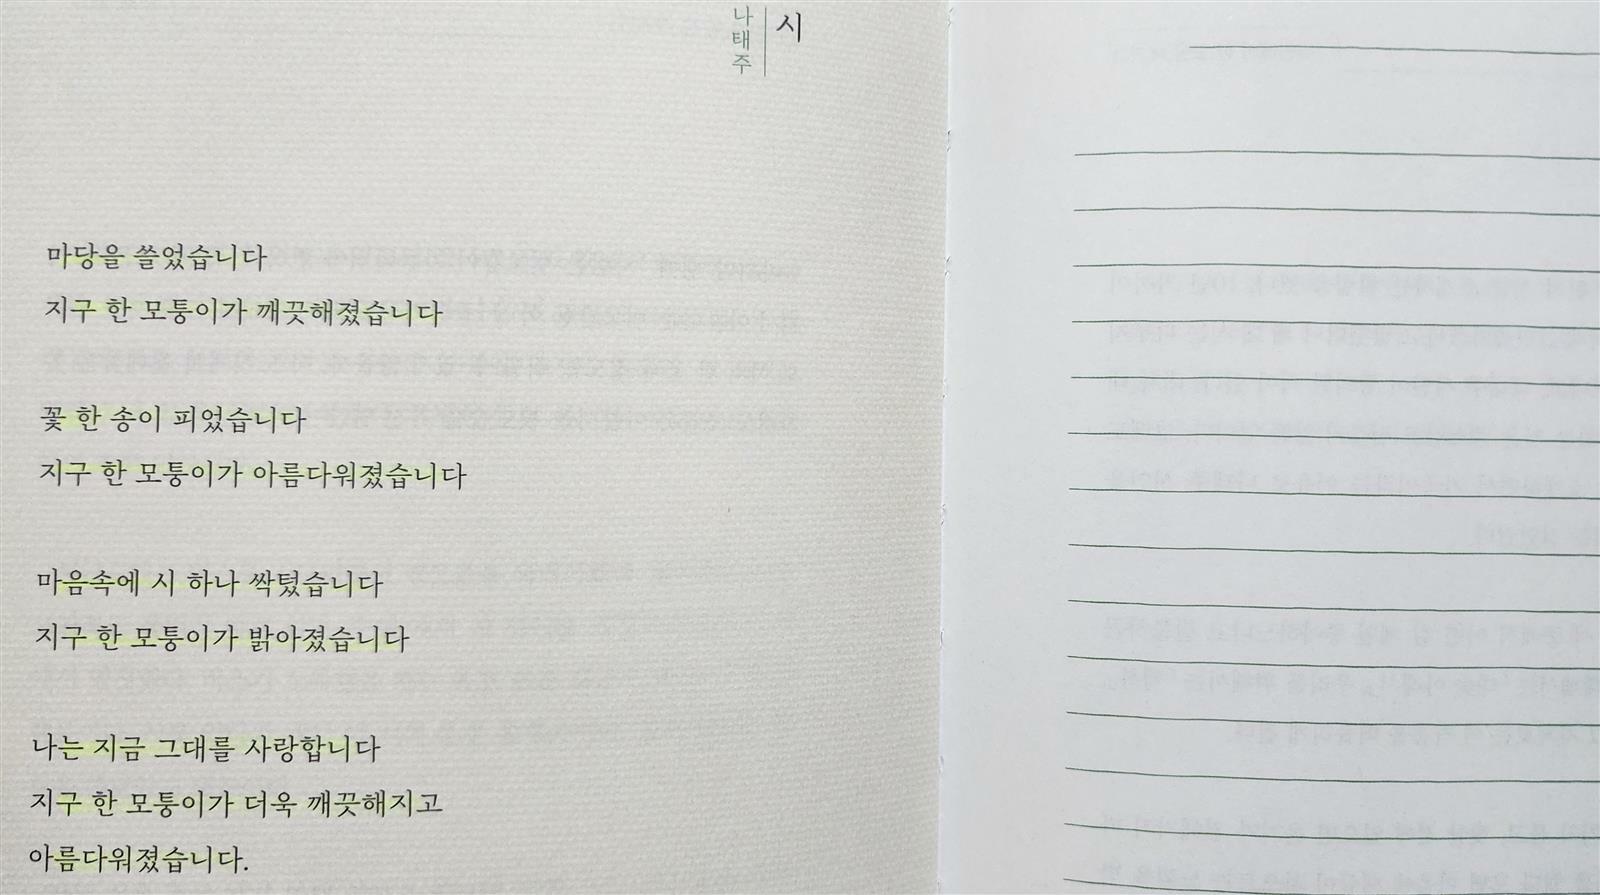 시
나태주
마당을 쓸었습니다
지구 한 모퉁이가 깨끗해졌습니다
꽃 한 송이 피었습니다
지구 한 모퉁이가 아름다워졌습니다
마음속에 시 하나 싹텄습니다
지구 한 모퉁이가 밝아졌습니다
나는 지금 그대를 사랑합니다
지구 한 모퉁이가 더욱 깨끗해지고
아름다워졌습니다.